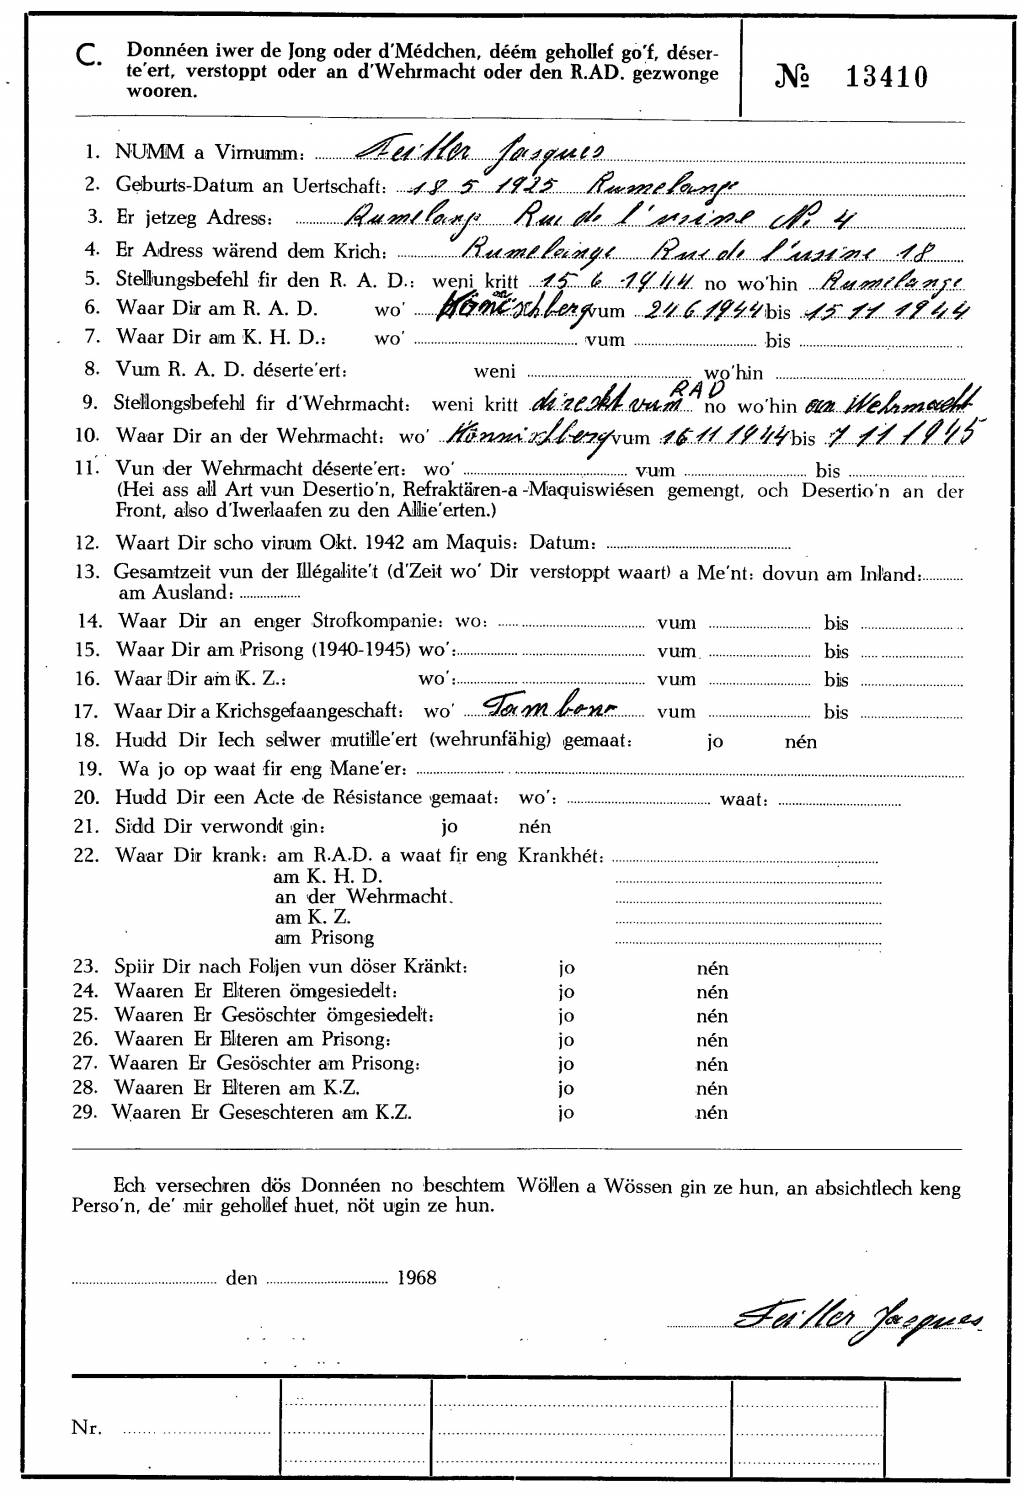 C. Donnéen iwer de Jong oder d'Médchen, déém gehollef go'f, déser-
te'ert, verstoppt oder an d'Wehrmacht oder den R.AD. gezwonge
wooren.
№ 13410
1. NUMM a Virnumm: Feiller Jacques
2. Geburts-Datum an Uertschaft: 18 5 1925 Rumelange
3. Er jetzeg Adress: Rumelange Rue de l'usine No 4
4. Er Adress wärend dem Krich: Rumelange Rue de l'usine 18
5. Stellungsbefehl fir den R. A. D.: weni kritt 15 6 1944 no wo'hin Rumelange
6. Waar Dir am R. A. D. wo' vum 24 6 1944 bis 15 11 1944
7. Waar Dir am K. H. D.: wo' vum bis
8. Vum R. A. D. déserte'ert: weni wo'hin
9. Stellongsbefehl fir d'Wehrmacht: weni kritt direkt vum RAD no wo'hin an Wehrmacht
10. Waar Dir an der Wehrmacht: wo' Konnischberg vum 16 11 1944 bis 7 11 1945
11. Vun der Wehrmacht déserte'ert: wo' vum bis
(Hei ass all Art vun Desertio'n, Refraktären-a -Maquiswiésen gemengt, och Desertio'n an der
Front, also d'Iwerlaafen zu den Allie'erten.)
12. Waart Dir scho virum Okt. 1942 am Maquis: Datum:
13. Gesamtzeit vun der Illégalite't (d'Zeit wo' Dir verstoppt waart) a Me'nt: dovun am Inland:
am Ausland:
14. Waar Dir an enger Strofkompanie: wo: vum bis
15. Waar Dir am Prisong (1940-1945) wo': vum bis
16. Waar Dir am K. Z.: wo': vum bis
17. Waar Dir a Krichsgefaangeschaft: wo' Tambour vum bis
18. Hudd Dir Iech selwer mutille'ert (wehrunfähig) gemaat: jo nén
19. Wa jo op waat fir eng Mane'er:
20. Hudd Dir een Acte de Résistance gemaat: wo': waat:
21. Sidd Dir verwondt gin: jo nén
22. Waar Dir krank: am R.A.D. a waat fir eng Krankhét:
am K. H. D.
an der Wehrmacht.
am K. Z.
am Prisong
23. Spiir Dir nach Foljen vun döser Kränkt: jo nén
24. Waaren Er Elteren ömgesiedelt: jo nén
25. Waaren Er Gesöschter ömgesiedelt: jo nén
26. Waaren Er Elteren am Prisong: jo nén
27. Waaren Er Gesöschter am Prisong: jo nén
28. Waaren Er Elteren am K.Z. jo nén
29. Waaren Er Geseschteren am K.Z. jo nén
Ech versechren dös Donnéen no beschtem Wöllen a Wössen gin ze hun, an absichtlech keng
Perso'n, de' mir gehollef huet, nöt ugin ze hun.
den 1968
Feiller Jacques
Nr.